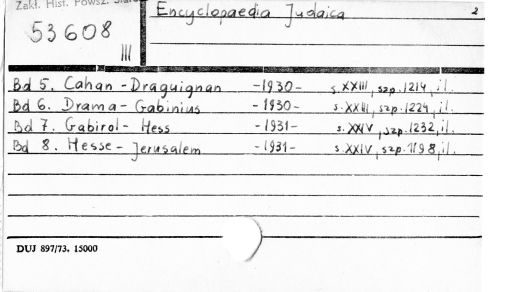 Zakł. Hist. Powsz. Staroż
53608
III
Encyclopaedia Judaica 2
Bd 5. Cahan - Draguignan -1930- s.XXIII, szp.1214, il.
Bd 6. Drama - Gabinius -1930- s.XXIII, szp.1224, il.
Bd 7. Gabirol - Hess -1931- s.XXIV, szp.1232, il.
Bd 8. Hesse - Jerusalem -1931- s.XXIV, szp.1198, il.
DUJ 897/73. 15000